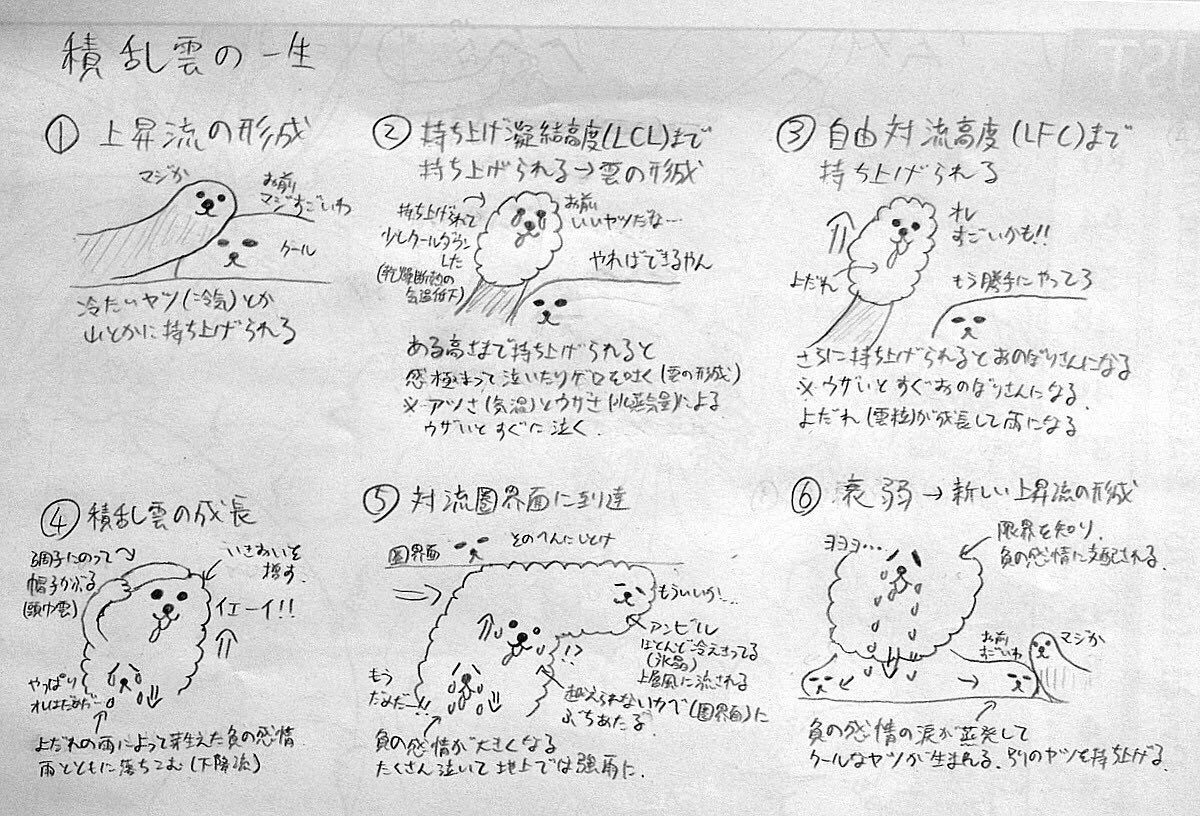 積乱雲の一生
① 上昇流の形成
マジか
お前
マジすごいわ
クール
冷たいヤツ(冷気)とか
山とかに持ち上げられる
② 持ち上げ凝結高度(LCL)まで
持ち上げられる→雲の形成
持ち上げられて
少しクールダウン
した
(乾燥断熱の
気温低下)
お前
いいヤツだな…
やればできるやん
ある高さまで持ち上げられると
感極まって泣いたりゲロを吐く(雲の形成)
※アツさ(気温)とウザさ(水蒸気量)による
ウザいとすぐに泣く.
③ 自由対流高度(LFC)まで
持ち上げられる
オレ
すごいかも!!
よだれ
もう勝手にやってろ
さらに持ち上げられるとおのぼりさんになる
※ウザいとすぐおのぼりさんになる.
よだれ(雲粒)が成長して雨になる
④ 積乱雲の成長
調子にのって
帽子かぶる
(頭巾雲)
いきおいを
増す.
イエーイ!!
やっぱり
オレはだめだ…
よだれの雨によって芽生えた負の感情
雨とともに落ちこむ(下降流)
⑤ 対流圏界面に到達
圏界面
そのへんにしとけ
もういいか…
アンビル
ほとんど冷えきってる
(氷晶)
上層風に流される
!?
越えられないカベ(圏界面)に
ぶちあたる
もう
だめだー!!
負の感情が大きくなる
たくさん泣いて地上では強雨に.
⑥ 衰弱→新しい上昇流の形成
ヨヨヨ…
限界を知り
負の感情に支配される.
お前
すごいわ
マジか
負の感情の涙が蒸発して
クールなヤツが生まれる.別のヤツを持ち上げる.